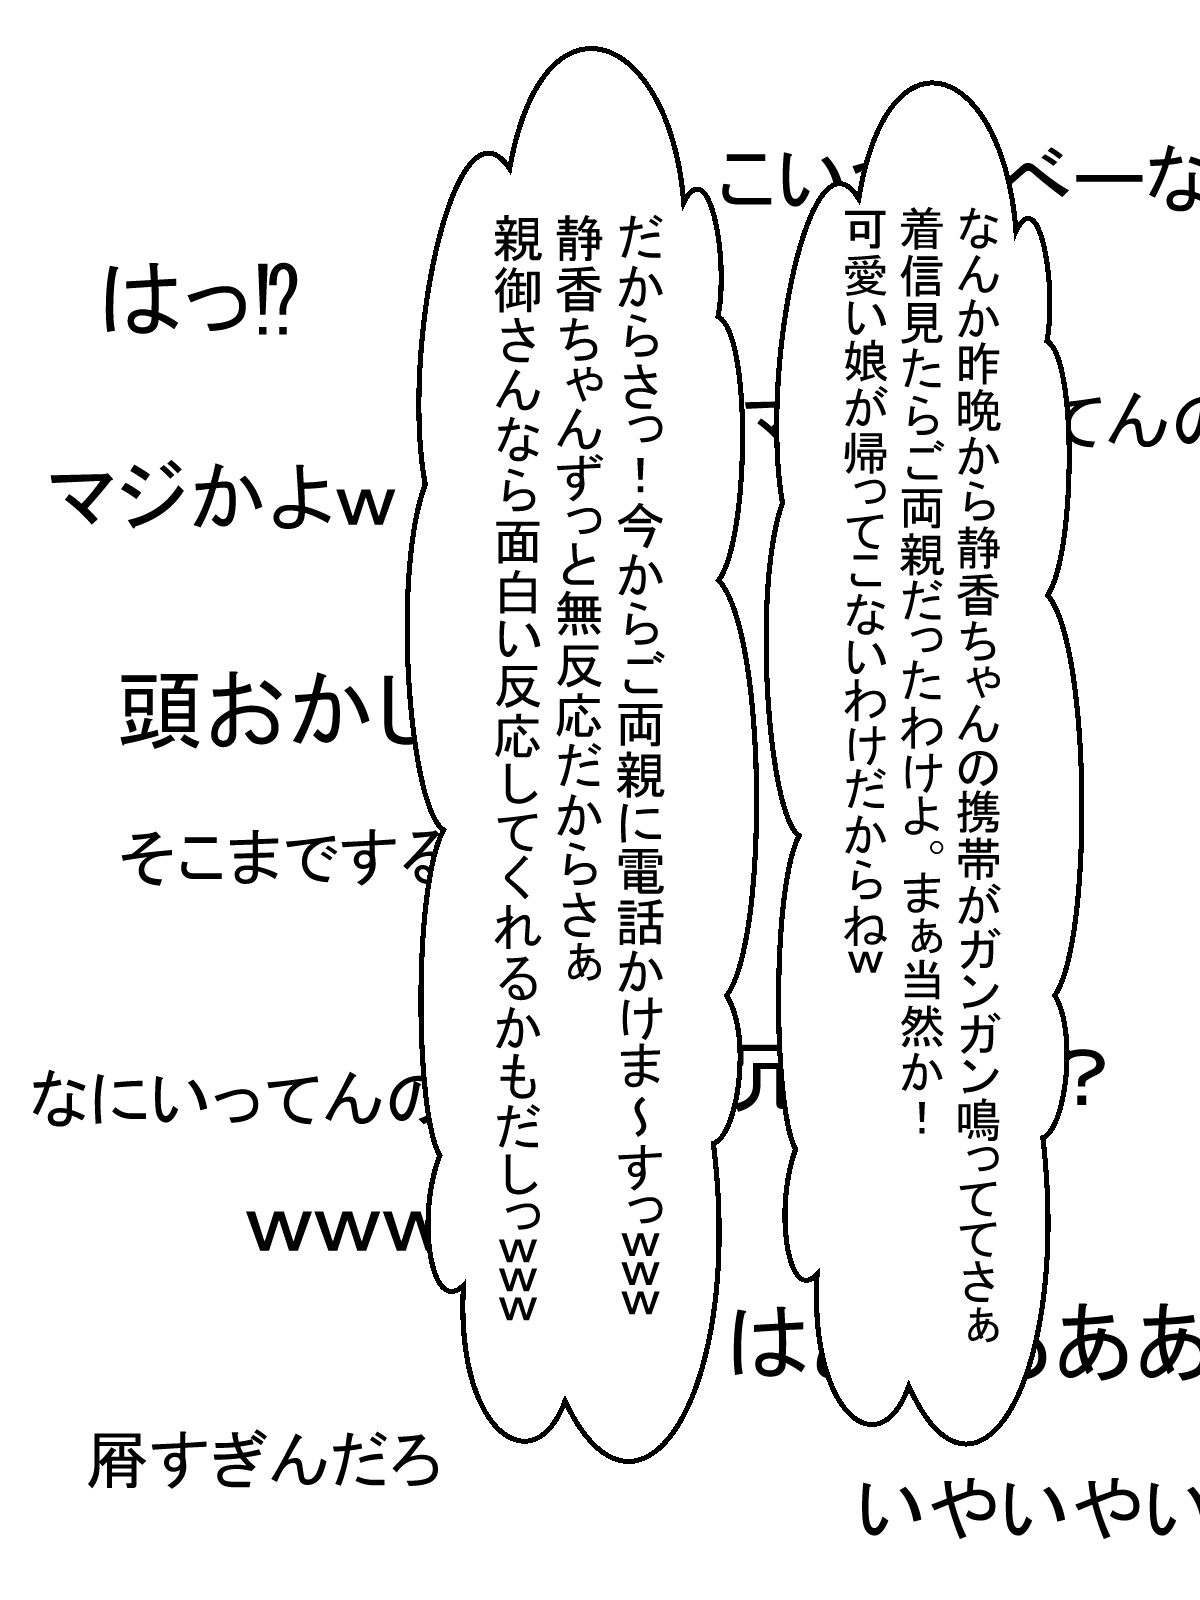 なんか昨晩から静香ちゃんの携帯がガンガン鳴っててさぁ
着信見たらご両親だったわけよ。まぁ当然か！
可愛い娘が帰ってこないわけだからねw
だからさっ！今からご両親に電話かけま～すっwww
静香ちゃんずっと無反応だからさぁ
親御さんなら面白い反応してくれるかもだしっwww
こい
べーな
てんの
？
は
ああ
いやいやい
はっ⁉
マジかよw
頭おかし
そこまでする
なにいってんの
www
屑すぎんだろ